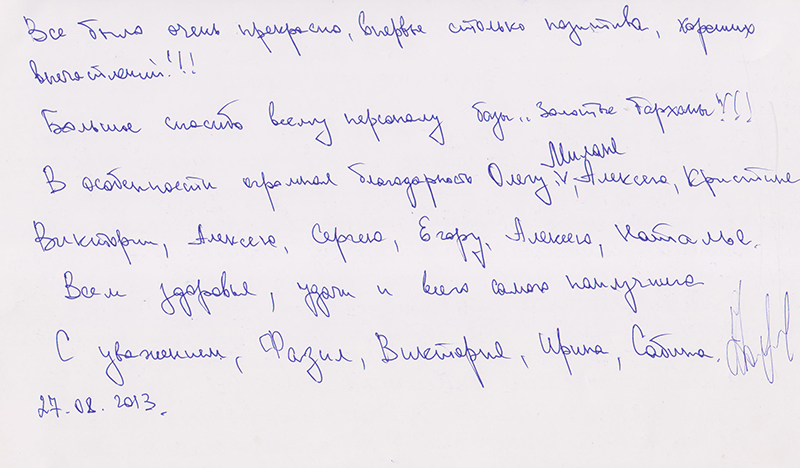 Все было очень прекрасно, впервые столько позитива, хороших
впечатлений!!!
Большое спасибо всему персоналу базы „Золотые Тарханы"!!!
В особенности огромная благодарность Олегу, Милане, Алексею, Кристине
Виктории, Алексею, Сергею, Егору, Алексею, Наталье.
Всем здоровья, удачи и всего самого наилучшего
С уважением, Фазил, Виктория, Ирина, Сабина.
27.08.2013.